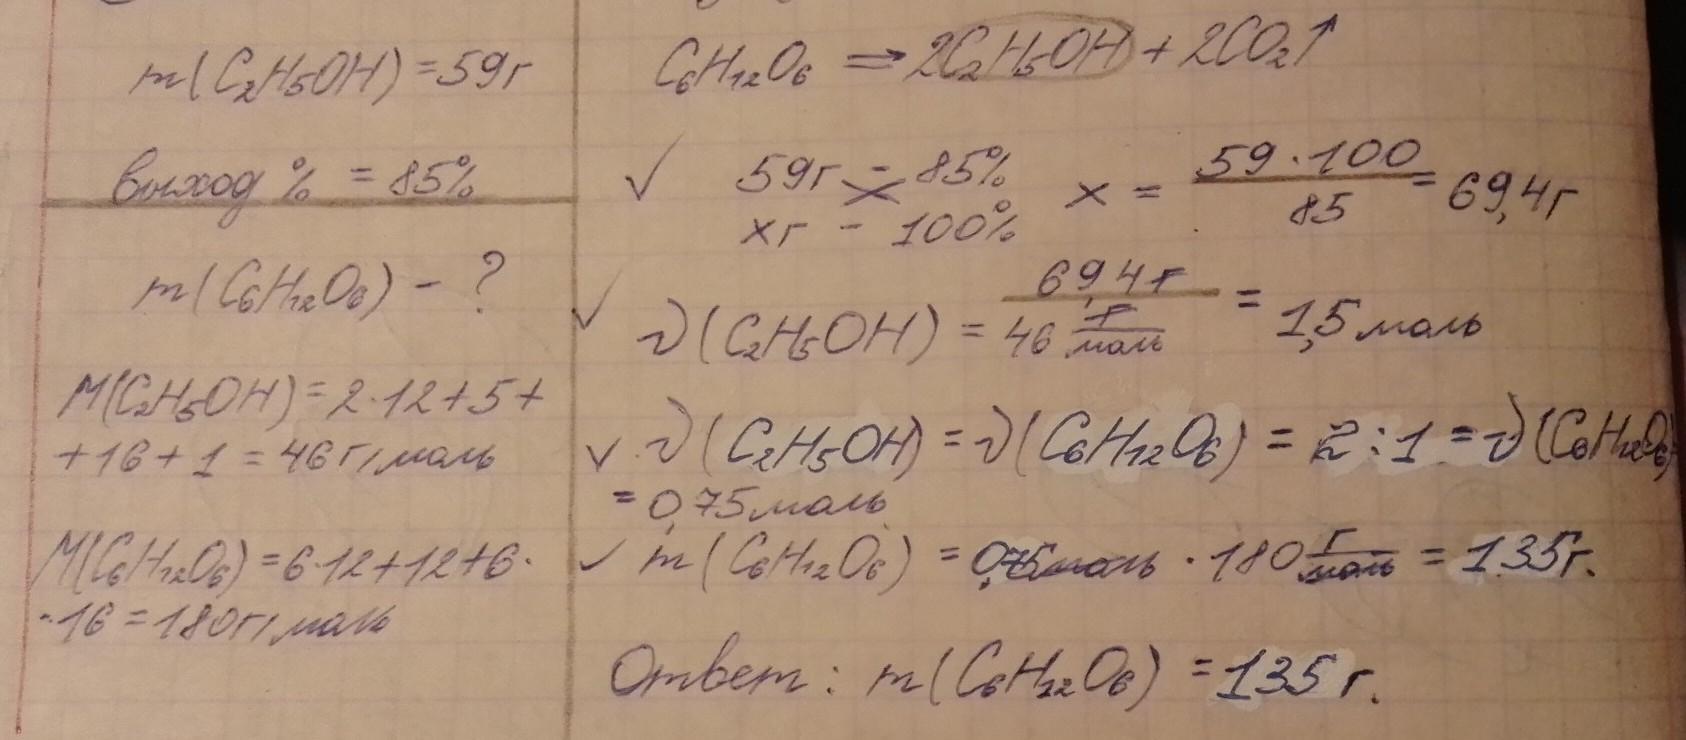 m(C₂H₅OH) = 59г
выход % = 85%
m(C₆H₁₂O₆) - ?
M(C₂H₅OH) = 2·12+5+
+16+1 = 46г/моль
M(C₆H₁₂O₆) = 6·12+12+6·
·16 = 180г/моль
C₆H₁₂O₆ ⇒ 2C₂H₅OH + 2CO₂↑
✓ 59г - 85% x = 59·100/85 = 69,4г
xг - 100%
✓ ν(C₂H₅OH) = 69,4г/46 г/моль = 1,5моль
✓ ν(C₂H₅OH) = ν(C₆H₁₂O₆) = 2:1 = ν(C₆H₁₂O₆)
= 0,75моль
✓ m(C₆H₁₂O₆) = 0,75моль · 180 г/моль = 135г.
Ответ: m(C₆H₁₂O₆) = 135г.